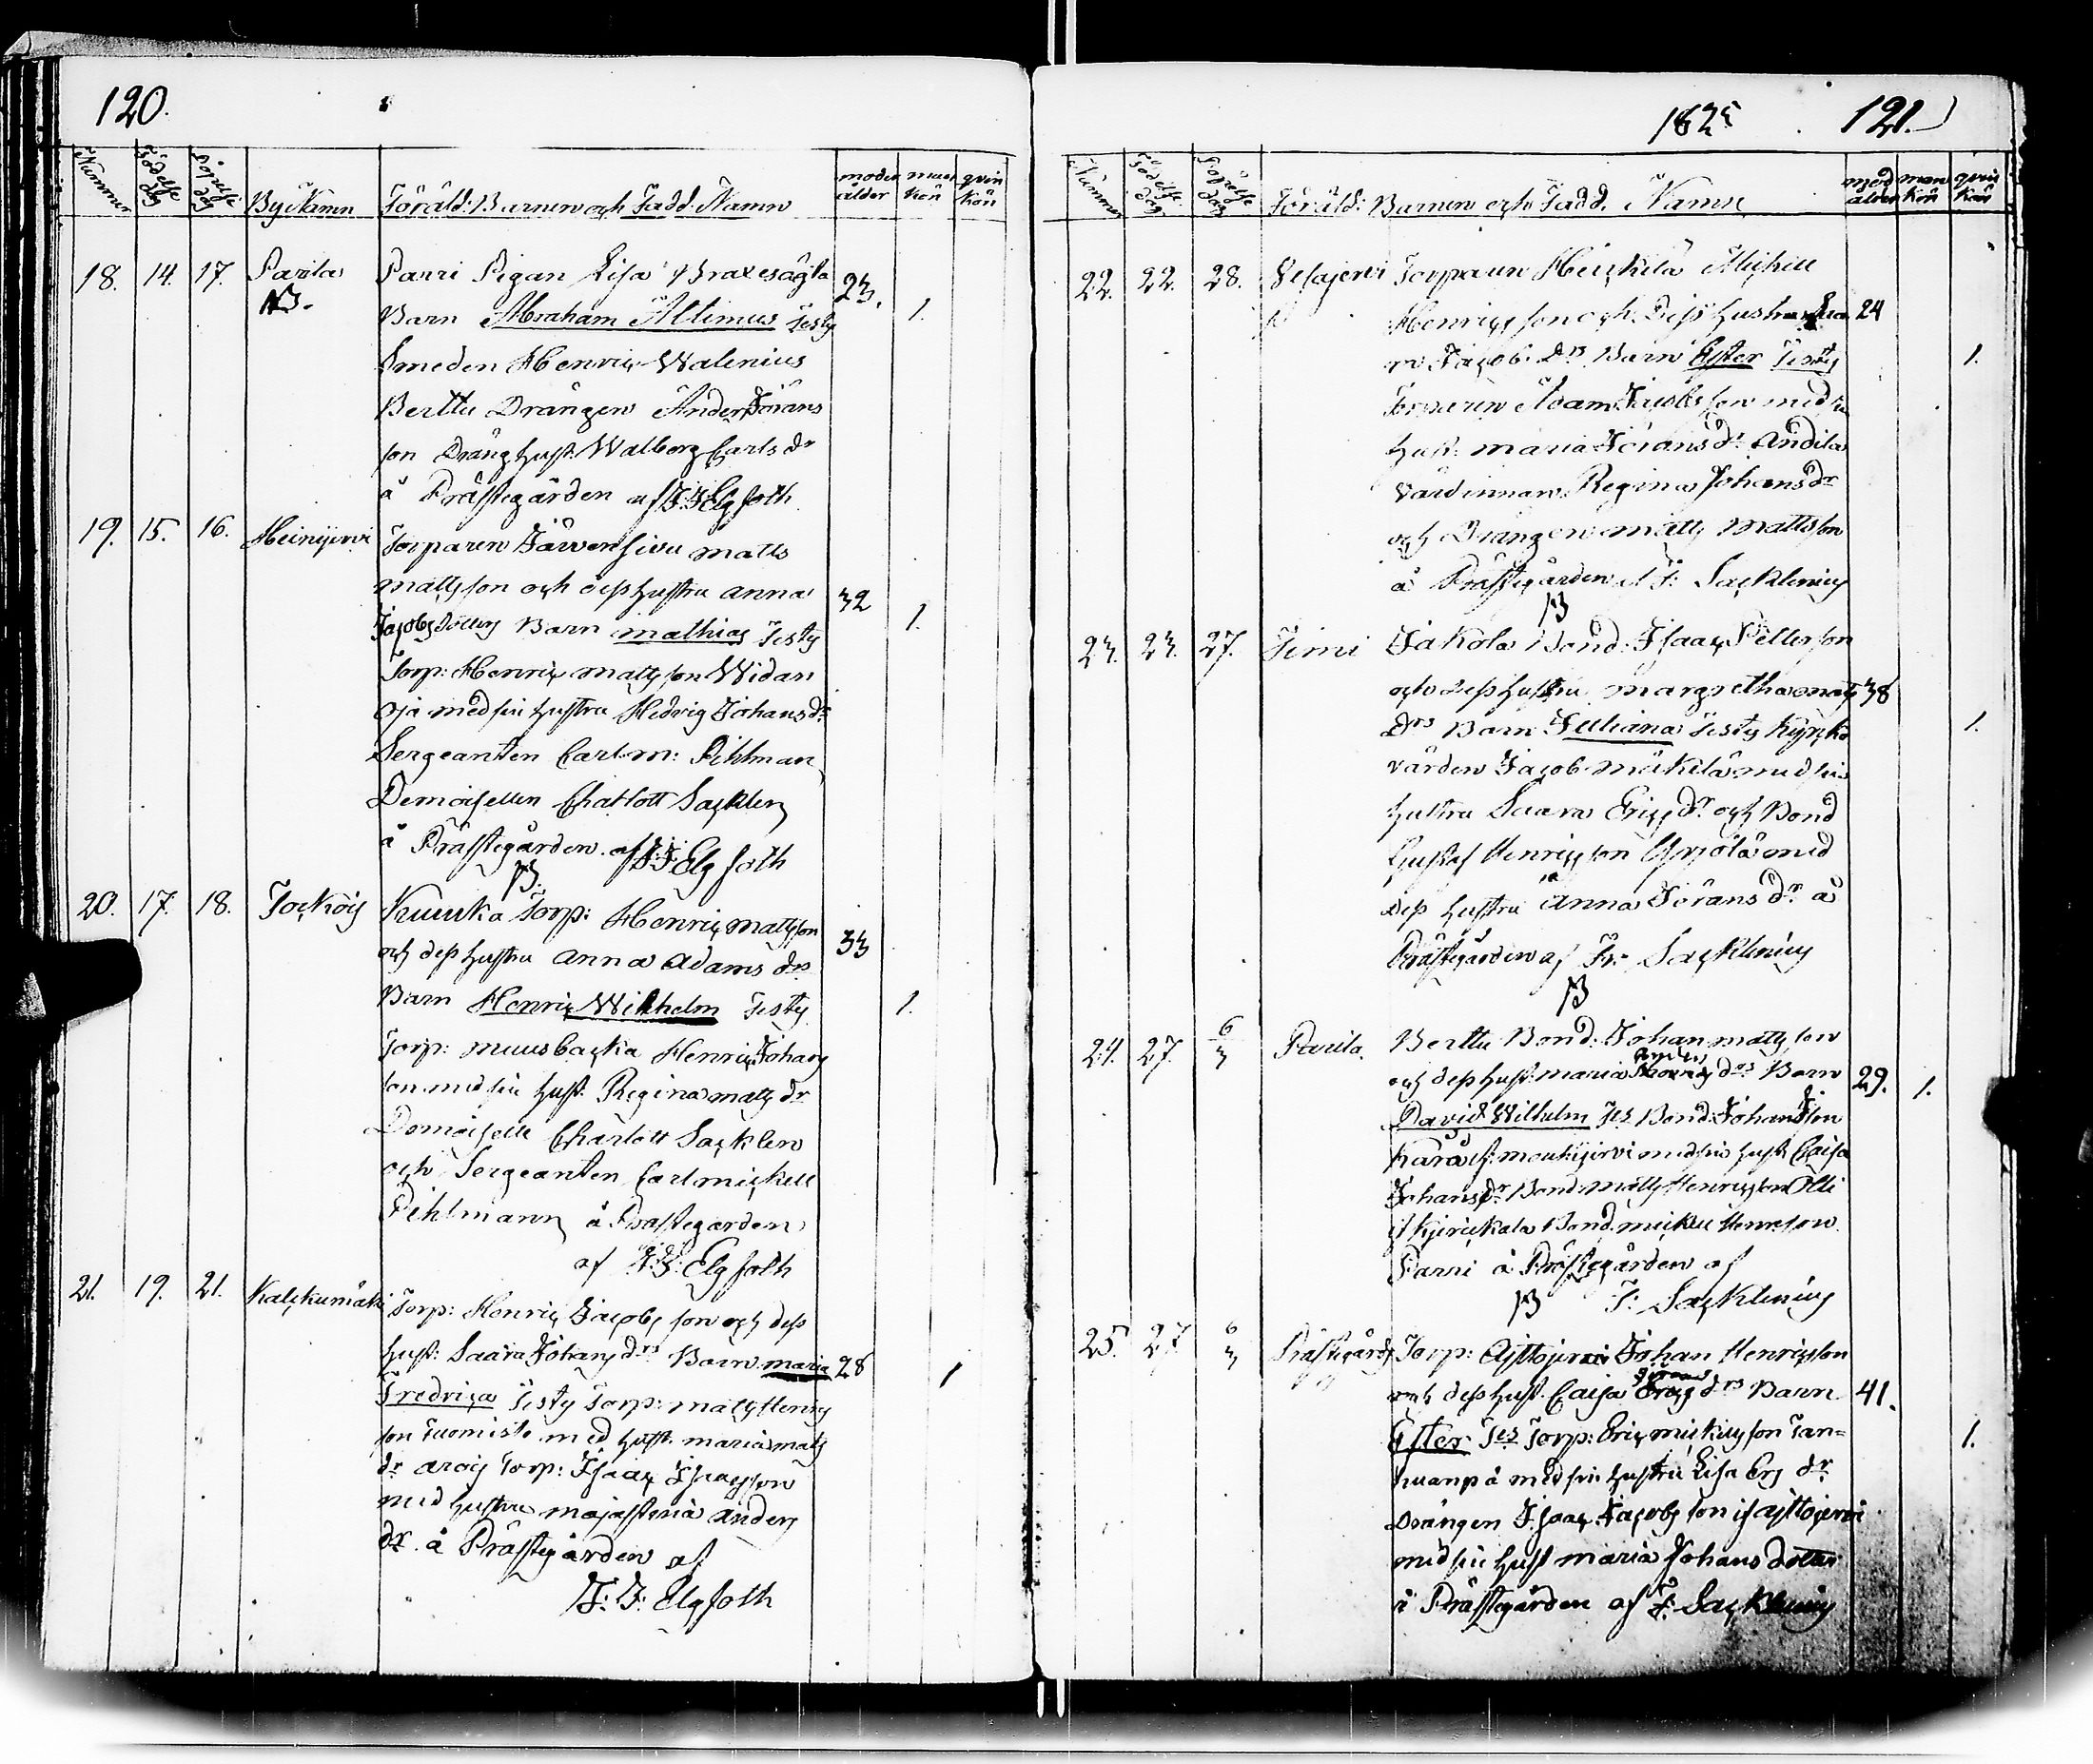 120.
Nummer Födelse dag Döpelse dag By Namn Föräld: Barnen och Fadd. Namn moder ålder man kön qvin kön
18. 14. 17. Parila Parri Pigan Lisa Braxesägta 23.
NB. Barn Abraham Altimus Test 1.
Smeden Henric Walenius
Berttu Drängen Anders Görans
son Dräng hust. Walborg Carls dr
å Prästegården af J: J: Elgfoth
19. 15. 16. Heinijervi Torparen Järvensivu Matts
Mattsson och dess hustru Anna 32
Jacobs dotters Barn Mathias Test 1.
Torp: Henric Mattsson Widan
oja med sin hustru Hedvig Johans dr
Sergeanten Carl M: Pihlman
Demoisellen Charlott Sacklen
å Prästegården af J: J: Elgfoth
20. 17. 18. Jockois Kuuska Torp: Henric Mattsson
och dess hustru Anna Adams drs 33
Barn Henric Wilhelm Test 1.
Torp: Muusbacka Henric Johans
son med sin hust. Regina Matts dr
Demoiselle Charlott Sacklen
och Sergeanten Carl Mickell
Pihlmann å Prästegården
af J: J: Elgfoth
21. 19. 21. Kalckumäki Torp: Henric Jacobs son och dess
hust: Saara Johans drs Barn Maria 28 1
Fredrica Test Torp: Matts Henrics
son Tuomisto med hust. Maria Matts
dr Torp: Isaac Isacsson
med hustru Majastina Anders
dr å Prästegården af
J: J: Elgfoth
1825 121.
Nummer Födelse dag Döpelse dag Föräld: Barnen och Fadd. Namn mod ålder man kön qvin kön
22. 22. 28. Torparen Heickilä Mickell
Henrics son och Dess hustru 24
Jacob. Drs Barn Ester Test 1.
Torparen Adam Jacobs son med sin
hust: Maria Görans dr Andila
värdinnan Regina Johans dr
och Drängen Matts Mattsson
å Prästegården af F: Sacklenius
23. 23. 27. Jakola Bond: Isaac Pettersson
och dess hustru Margretha Matts 38
Drs Barn Juliana Test Kyrcko 1.
värden Jacob Mäkilä med sin
hustru Saara Erics dr och Bond
Gustaf Henricsson med
dess hustru Anna Görans dr å
Prästegården af Fr: Sacklenius
24. 27. 6/3 Parila. Berttu Bond: Johan Matts son
och dess hust: Maria Anders drs Barn 29. 1.
David Wilhelm Tes Bond: Johan J son
med sin hust Caisa
Johans dr Bond: Matts Henricsson Olli
if Bond. Mickel Henrcson
Parri å Prästegården af
F: Sacklenius
25. 27 6/3 Prästegård Torp: Ajstojervi Johan Henricsson
och dess hust. Caisa Görans drs Barn 41.
Ester Tes Torp: Eric Mickels son Tan= 1.
huanpä med sin hustru Lisa Ers dr
Drängen Isaac Jacobs son if Ajstojervi
med sin hust Maria Johans dotter
å Prästegården af F: Sacklenius